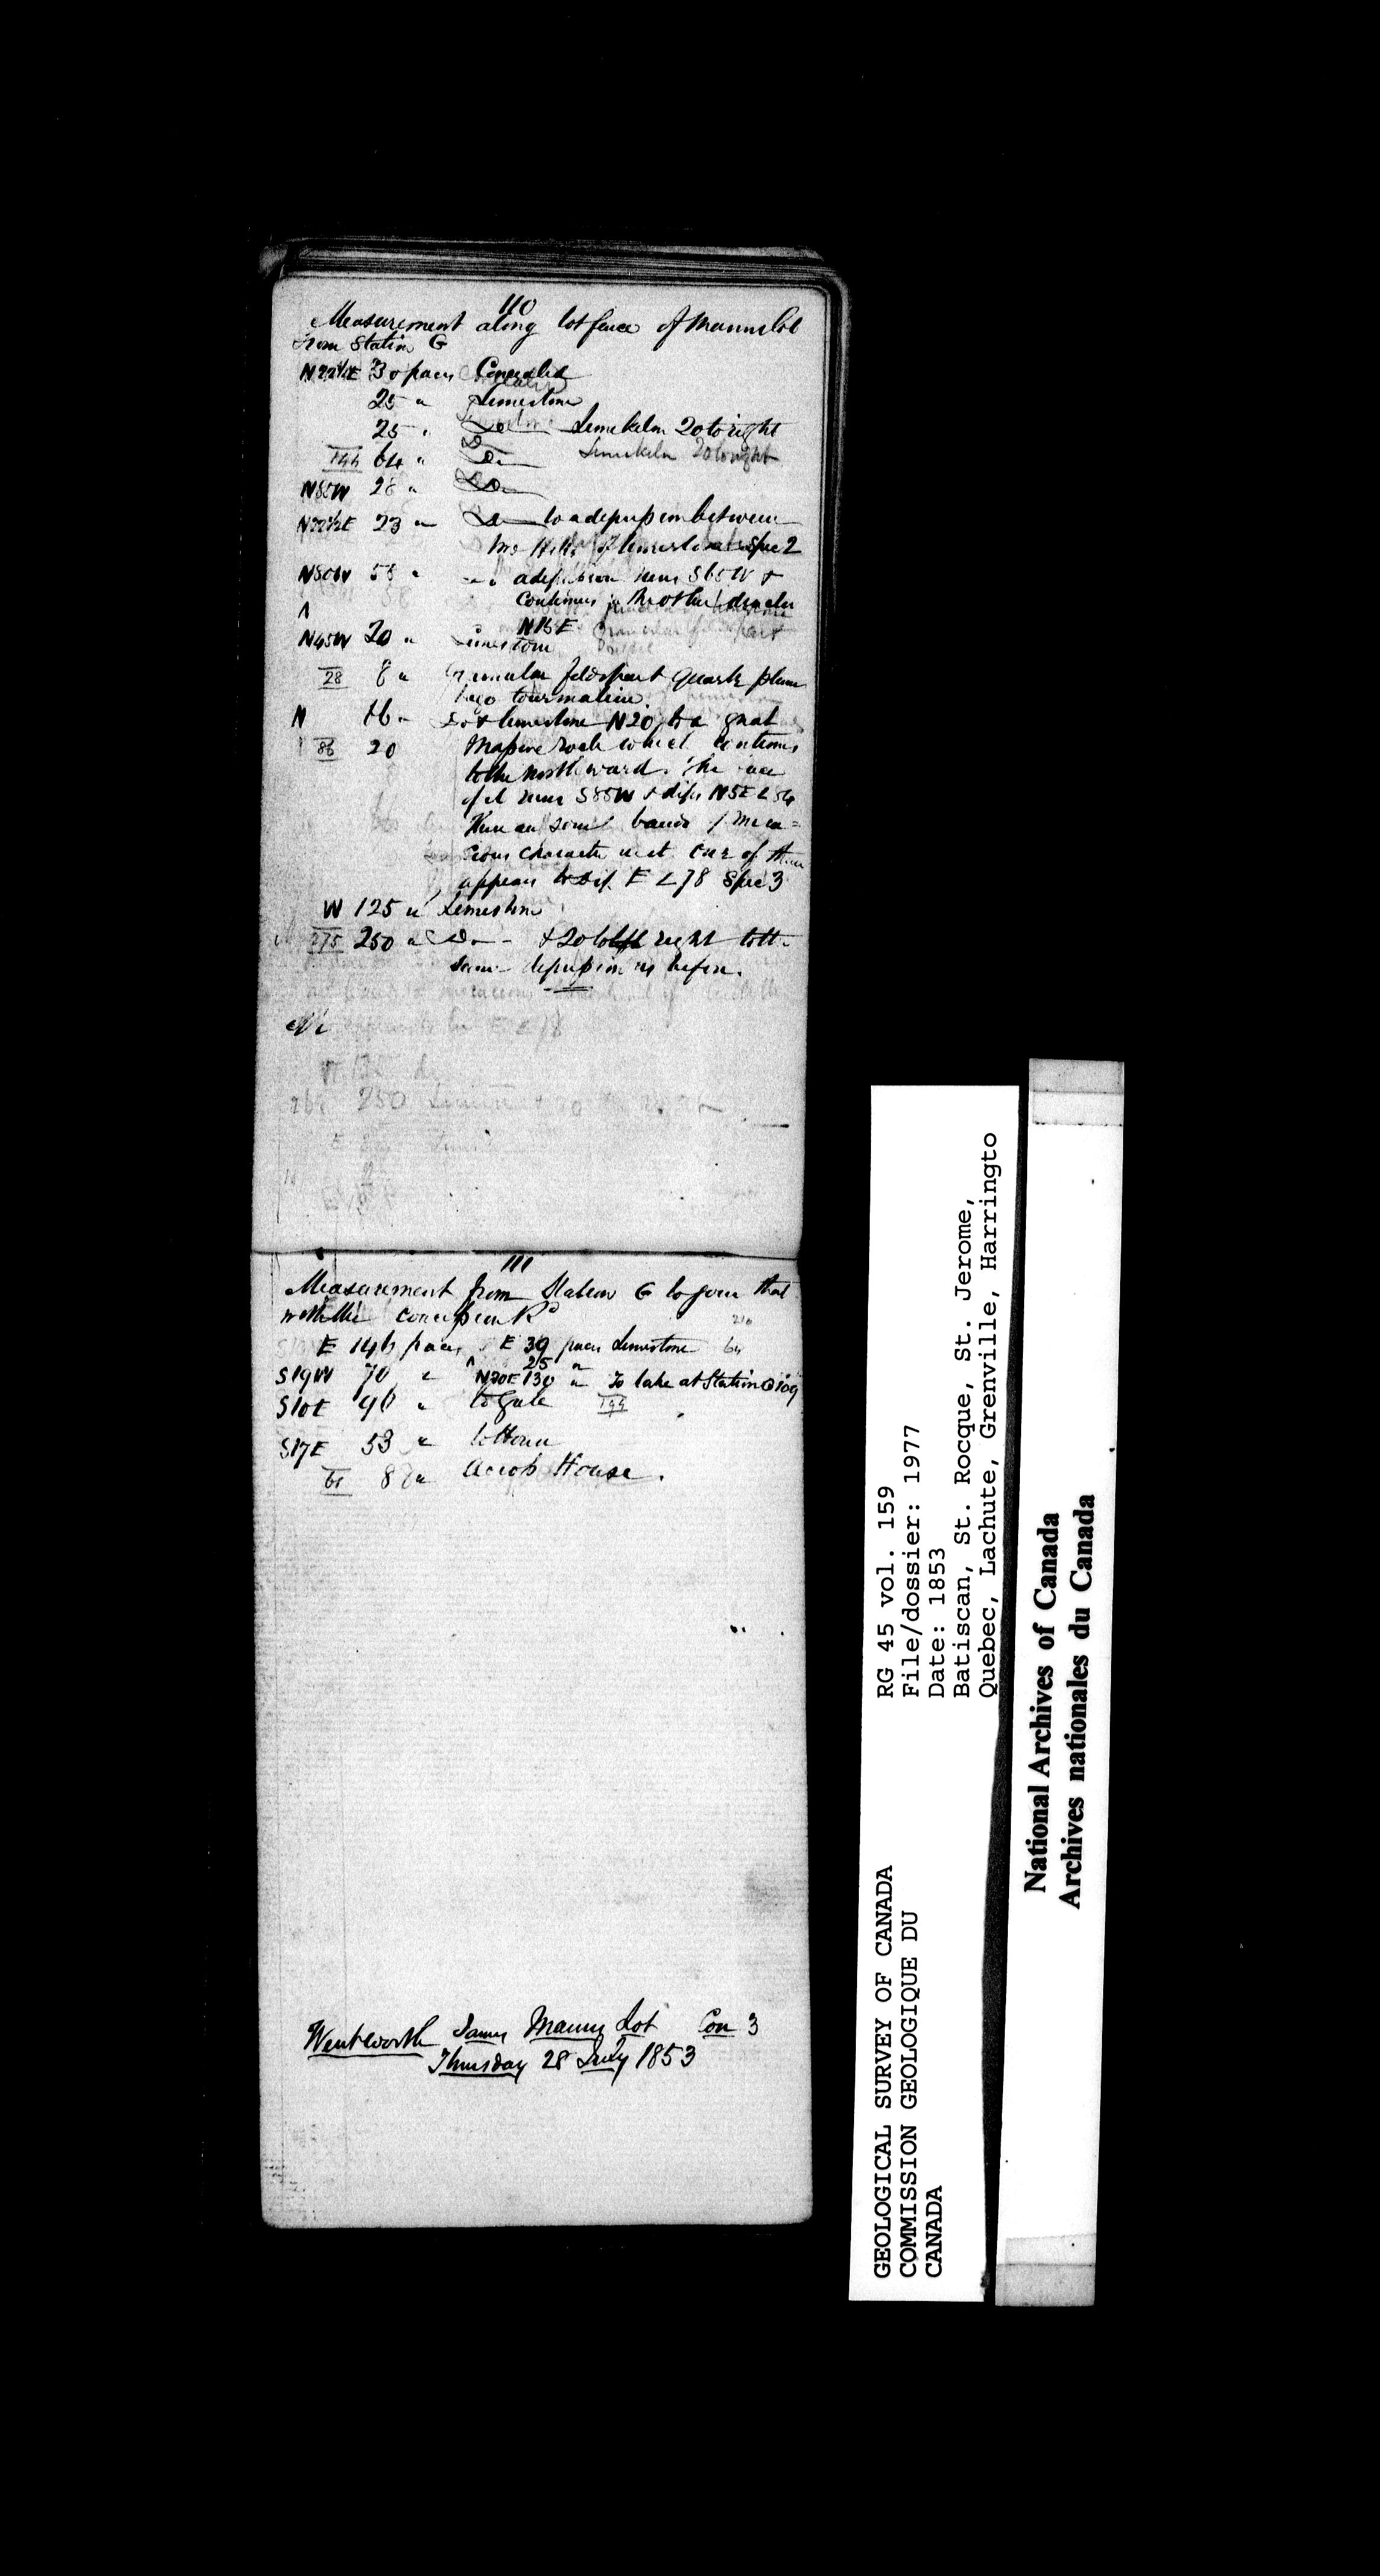 110
Measurement along lot fence of Manns lot
from Station G
N22½E 30 paces Concealed
25 " Limestone
25 " Do Limekiln 20 to right
144 64 " Do Limekiln 20 to right
N85W 28 " Do
N22½E 23 " Do to a depression between
two Hills of limestone Spec 2
N80W 58 " a depression runs S65W &
Continues in the other direction
N15E
N45W 20 " Limestone
28 8 " Granular feldspart quartz plum
bago tourmaline
N 16 " Do & limestone N20 to a great
86 20 Massive rock which continues
to the northward. The face
of it runs S85W & dips N5E < 54
There are some bands of mica=
cious character met one of them
appears to dip E < 78 Spec 3
W 125 " Limestone
275 250 " Do & 20 to left right to the
same depression as before.
250
111
Measurement from Station G to join that
with the concession Rd
210
E 146 paces E 39 paces Limestone 64
25 "
S19W 70 " N20E 130 " To lake at Station @ 109
S10E 96 " to gate 194
S17E 53 " to House
61 8 " across House.
Wentworth James Manns Lot Con 3
Thursday 28 July 1853
RG 45 vol. 159
File/dossier: 1977
Date: 1853
Batiscan, St. Rocque, St. Jerome,
Quebec, Lachute, Grenville, Harringto
GEOLOGICAL SURVEY OF CANADA
COMMISSION GEOLOGIQUE DU
CANADA
National Archives of Canada
Archives nationales du Canada